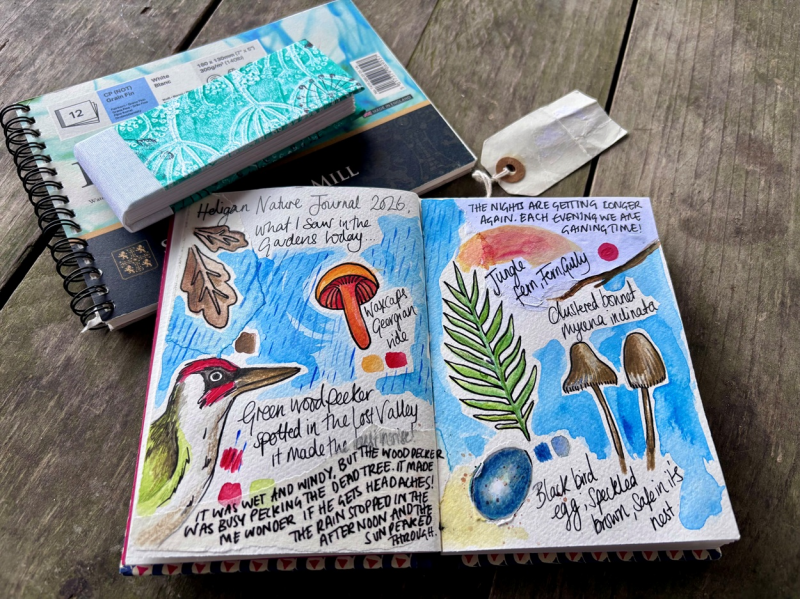 12
CP (NOT)
Grain Fin
White
Blanc
180 x 130mm (7" x 5")
300g/m² (140lb)
MILL
Heligan Nature Journal 2026.
What I saw in the
Gardens today...
Waxcaps
Georgian
ride
Green woodpecker
spotted in the Lost Valley
it made the
IT WAS WET AND WINDY, BUT THE WOODPECKER
WAS BUSY PECKING THE DEAD TREE. IT MADE
ME WONDER IF HE GETS HEADACHES!
THE RAIN STOPPED IN THE
AFTERNOON AND THE
SUN PEAKED
THROUGH.
THE NIGHTS ARE GETTING LONGER
AGAIN. EACH EVENING WE ARE
GAINING TIME!
Jungle
fern, Fern Gully
Clustered bonnet
mycena inclinata
Black bird
egg, speckled
brown, safe in it's
nest